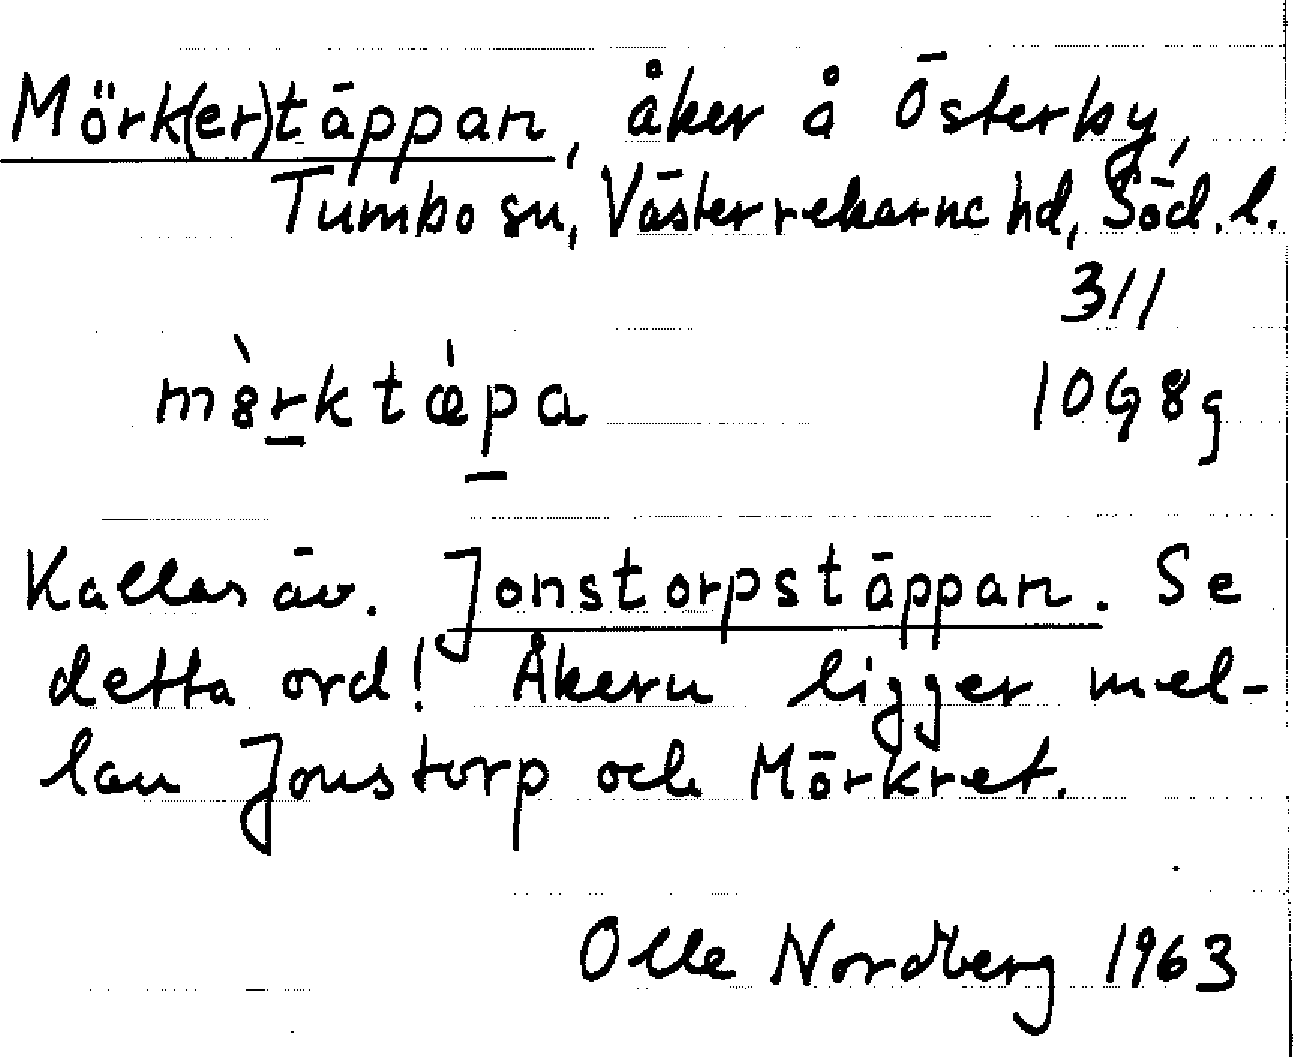 Mörk(er)täppan, åker å Österby,
Tumbo sn, Västerrekarne hd, Söd. l.
311
mö̀rktǽpa 10G8g
Kallas äv. Jonstorpstäppan. Se
detta ord! Åkern ligger mel-
lan Jonstorp och Mörkret.
Olle Nordberg 1963